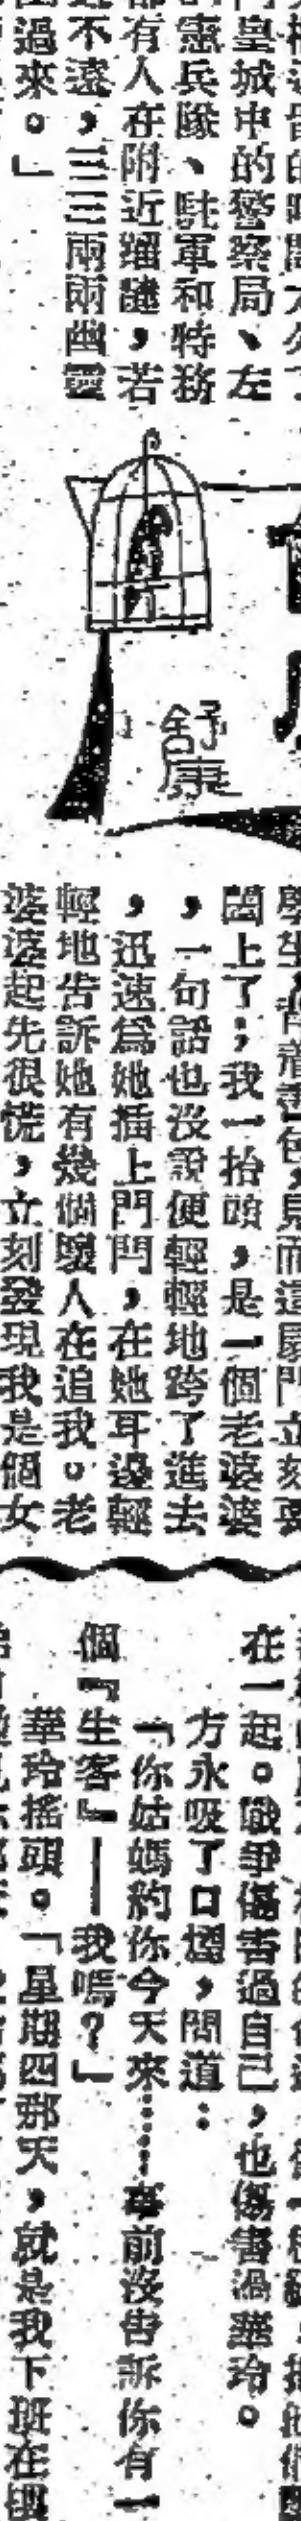 門皇城中的警察局、左
憲兵隊、駐軍和特務
都有人在附近蹓躂，若
不遠，三三兩兩幽靈
過來。」
舒康
學生，背着書包，見而這扇門立刻要
關上了；我一抬頭，是一個老婆婆
，一句話也沒說便輕輕地跨了進去
，迅速爲她插上門閂，在她耳邊輕
輕地告訴她有幾個壞人在追我。老
婆婆起先很慌，立刻發現我是個女
在一起。戰爭傷害過自己，也傷害過華玲。
方永吸了口煙，問道：
「你姑媽約你今天來……事前沒告訴你有一
個『生客』——我嗎？」
華玲搖頭。「星期四那天，就是我下班在